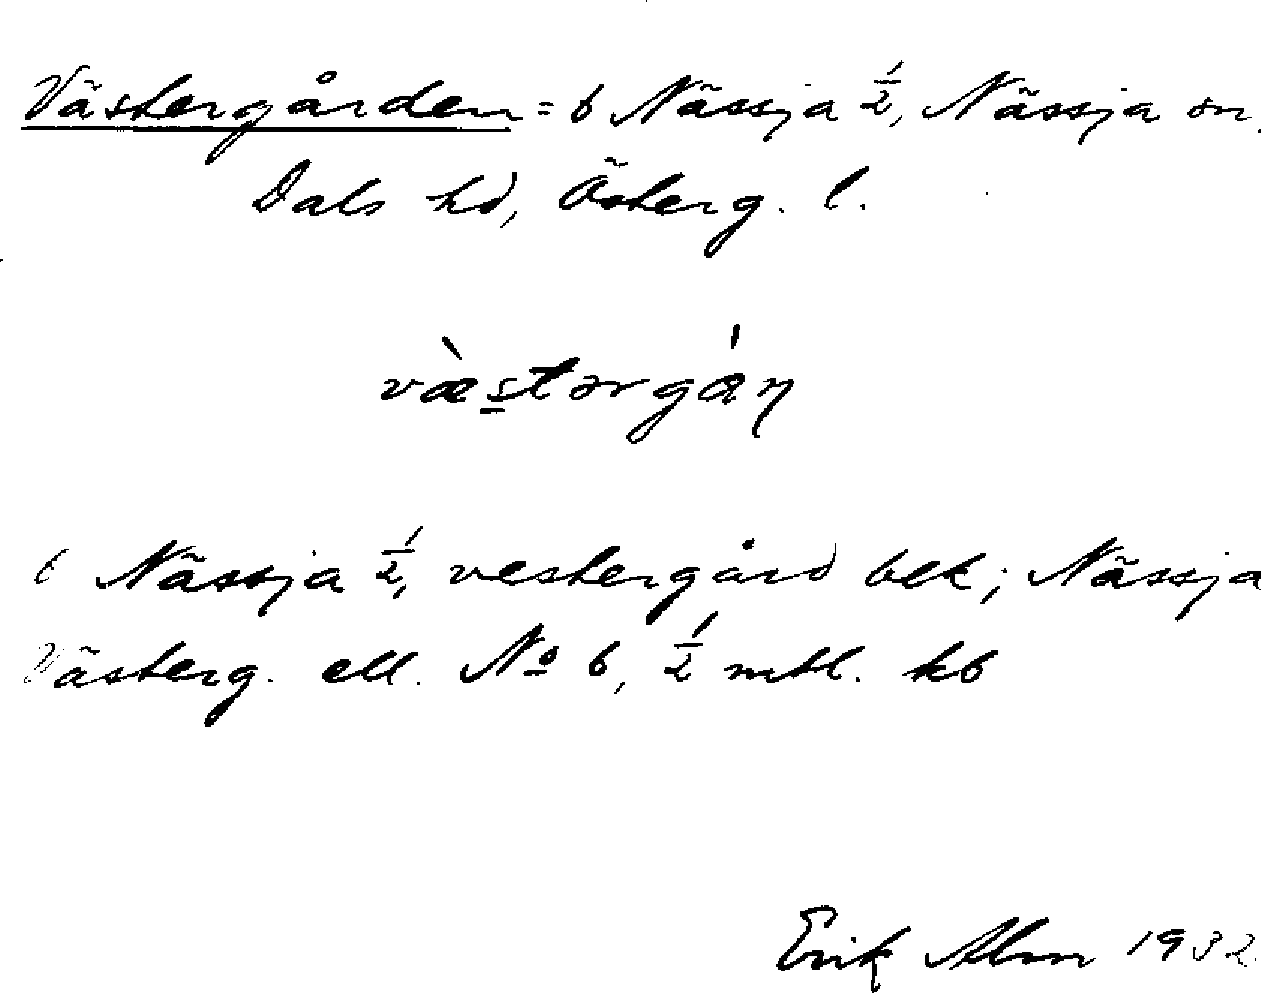 Västergården = 6 Nässja ½, Nässja sn.
Dals hd, Österg. l.
væ̀stərgán
6 Nässja ½, vestergård bek; Nässja
Västerg. ell. No 6, ½ mtl. kb
Erik Alm 1932.